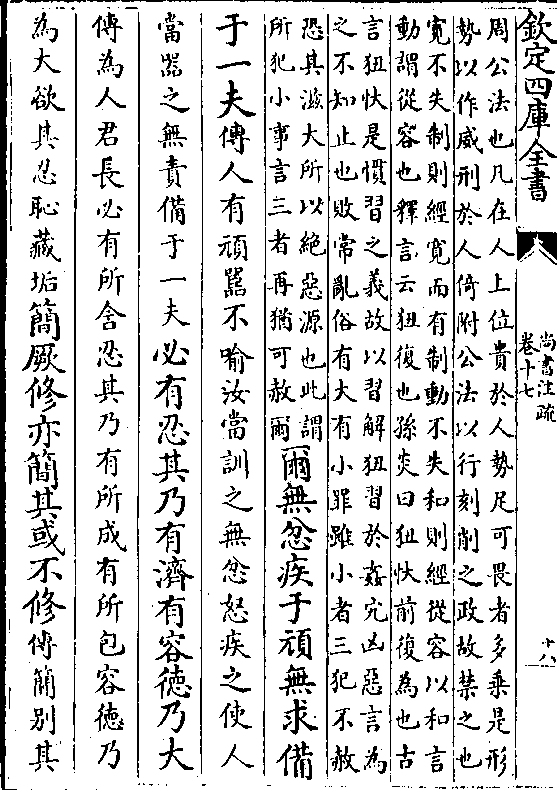 欽定四庫全書
尚書注疏
卷十七
十八
周公法也凡在人上位貴於人勢足可畏者多乗是形
勢以作威刑於人倚附公法以行刻削之政故禁之也
寛不失制則經寛而有制動不失和則經從容以和言
動謂從容也釋言云狃復也孫炎曰狃忕前復為也古
言狃忕是慣習之義故以習解狃習於姦宄凶惡言為
之不知止也敗常亂俗有大有小罪雖小者三犯不赦
恐其滋大所以絶惡源也此謂
所犯小事言三者再猶可赦爾
爾無忿疾于頑無求備
于一夫傳人有頑嚚不喻汝當訓之無忿怒疾之使人
當器之無責備于一夫必有忍其乃有濟有容德乃大
傳為人君長必有所含忍其乃有所成有所包容德乃
為大欲其忍恥藏垢簡厥修亦簡其或不修傳簡别其